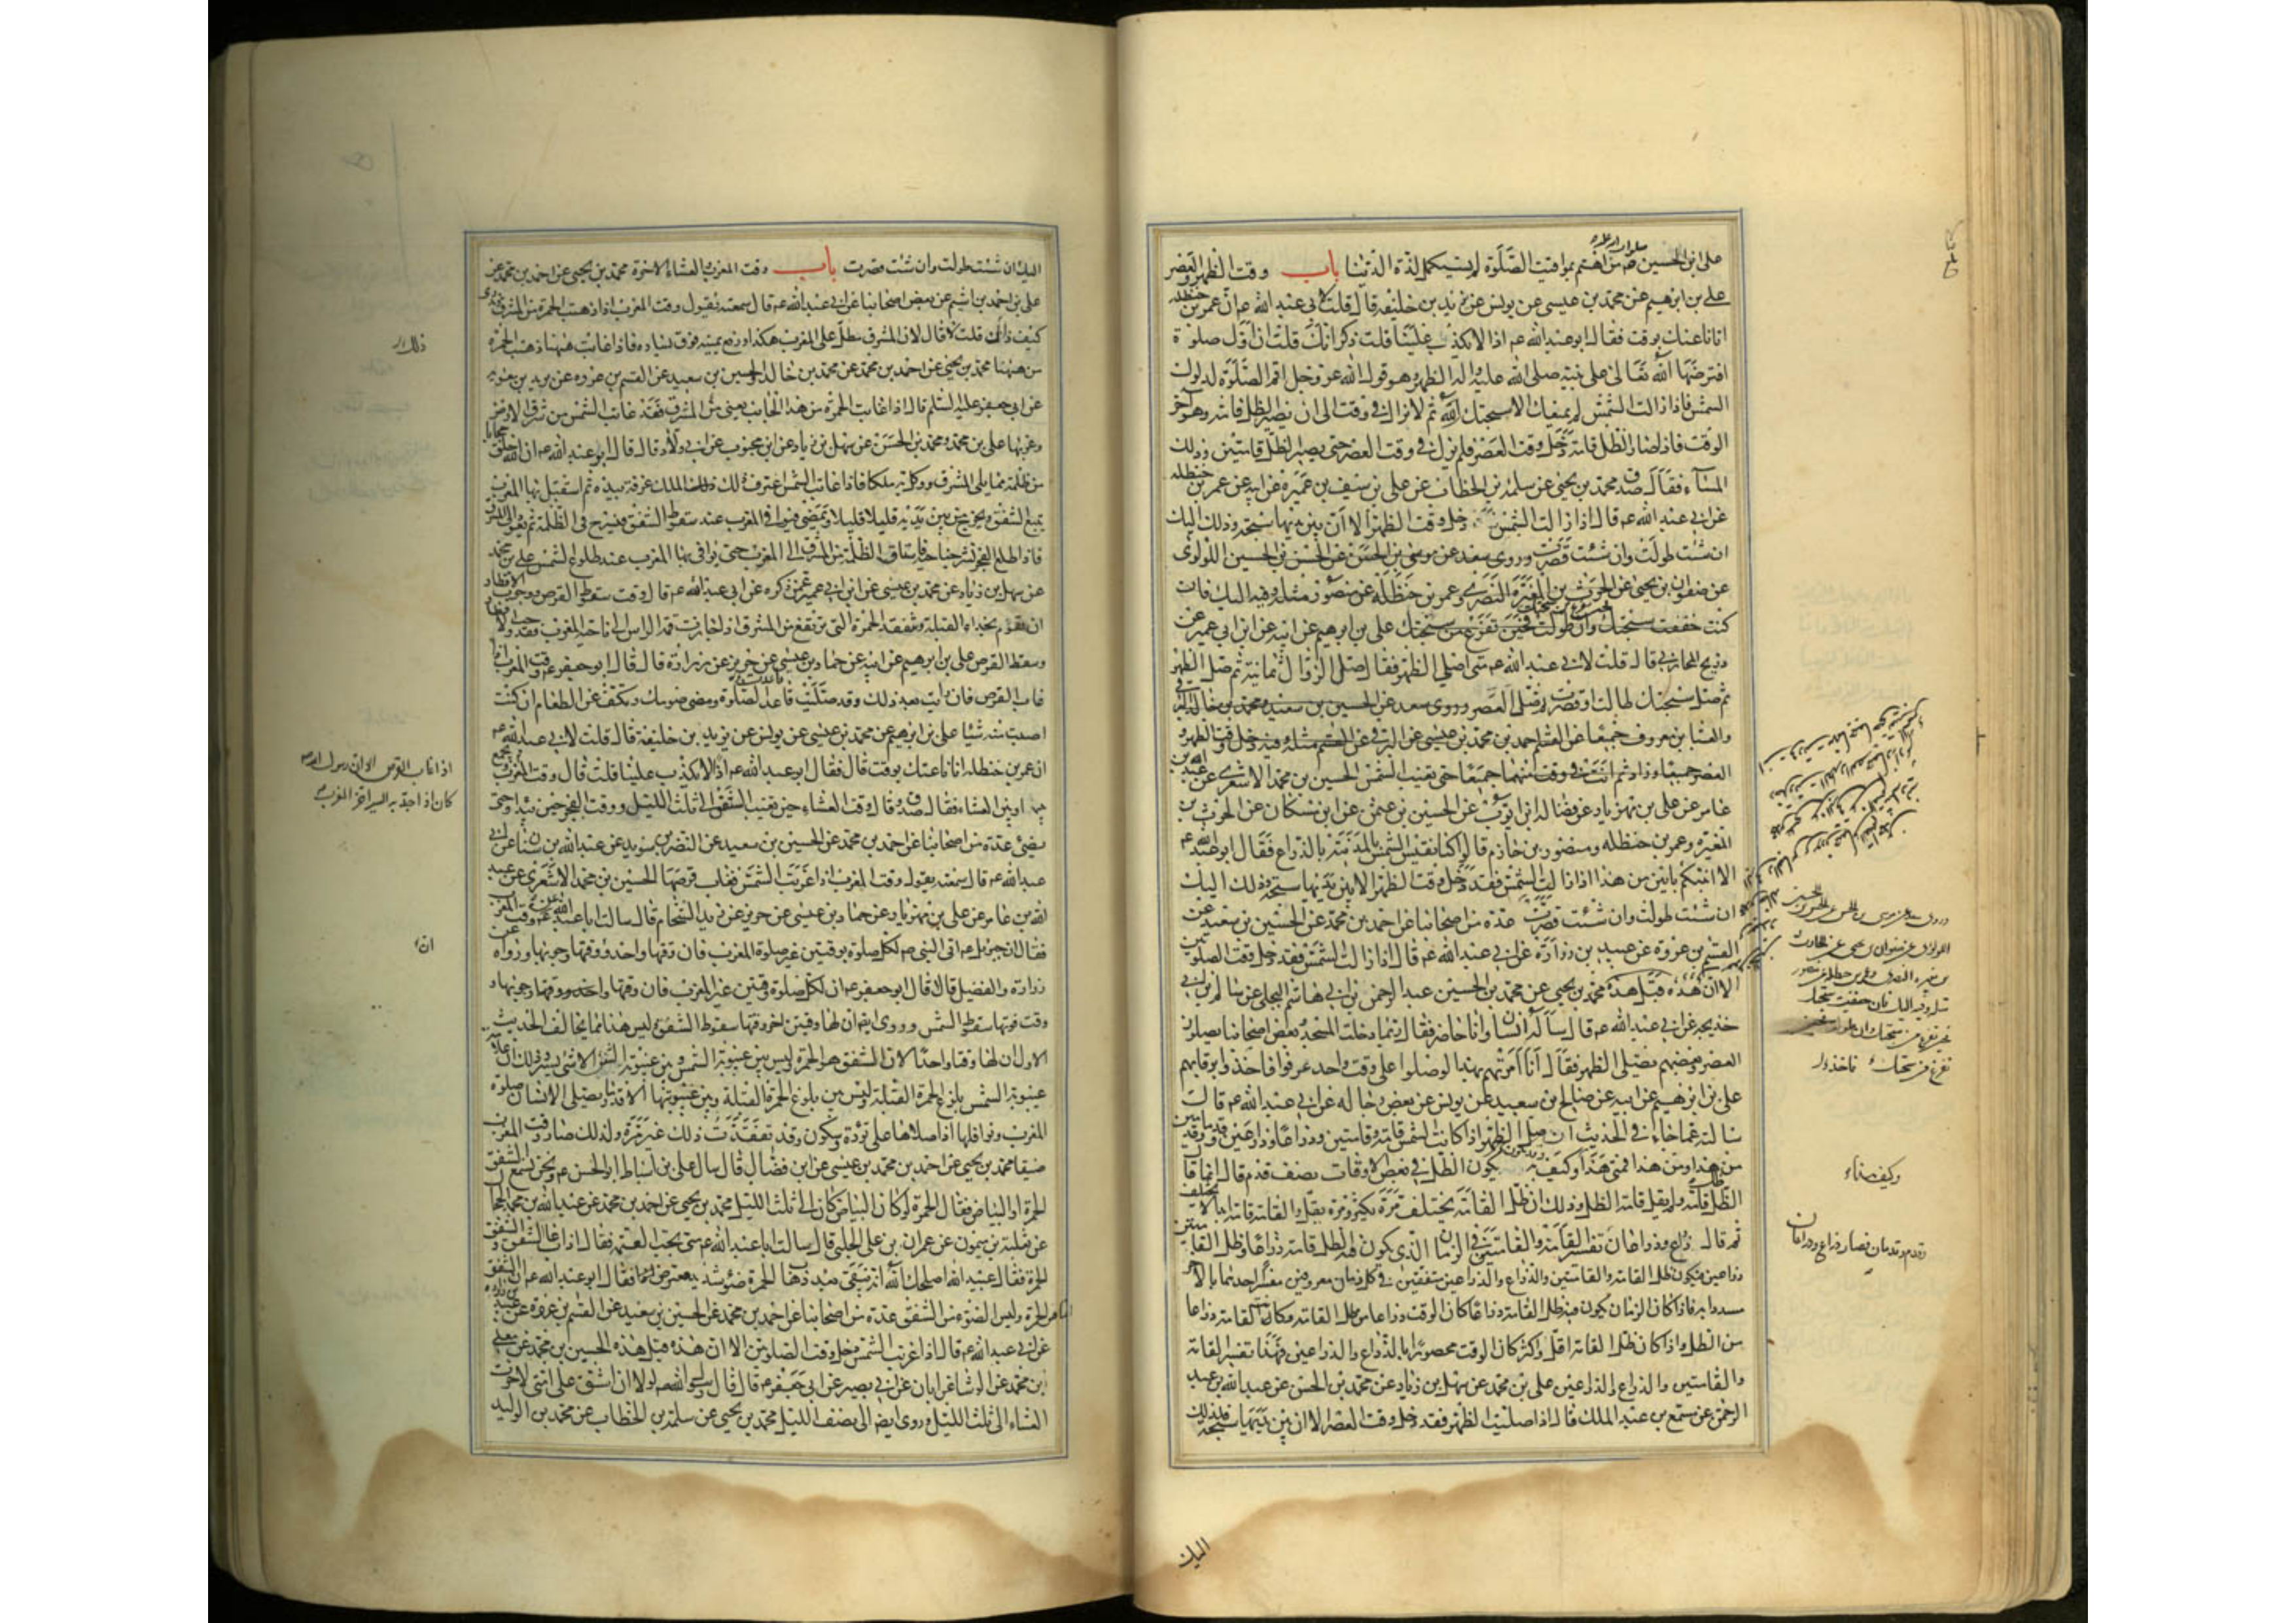 على ابن الحسين من اهتم بمواقيت الصلوة لم يستكمل لذة الدنيا باب وقت الظهر والعصر
علي بن ابرهيم عن محمد بن عيسى عن يونس عن يزيد بن خليفه قال قلت لابي عبد الله عم ان عمر بن حنظله
اتانا عنك بوقت فقال ابو عبد الله عم اذا لا يكذب علينا قلت ذكر انك قلت ان اول صلوة
افترضها الله تعالى على نبيه صلى الله عليه واله الظهر وهو قول الله عز وجل اقم الصلوة لدلوك
الشمس فاذا زالت الشمس لم يمنعك الا سبحتك ثم لا تزال في وقت الى ان يصير الظل قامة وهو آخر
الوقت فاذا صار الظل قامة دخل وقت العصر فلم نزل في وقت العصر حتى يصير الظل قامتين وذلك
المسآء فقال صدق محمد بن يحيى عن سلمة بن الخطاب عن علي بن سيف بن عميرة عن ابيه عن عمر بن حنظله
عن ابي عبد الله عم قال اذا زالت الشمس دخل وقت الظهر الا ان بين يديها سبحة وذلك اليك
ان شئت طولت وان شئت قصرت وروى سعد عن موسى بن الحسن عن الحسن بن الحسين اللولوى
عن صفوان بن يحيى عن الحرث بن المغيرة النصرى وعمر بن حنظلة عن منصور مثله وفيه اليك فان
كنت خففت سبحتك وان طولت فحين تفرغ من سبحتك علي بن ابرهيم عن ابيه عن ابن ابي عمير عن
ذريح المحاربي قال قلت لابي عبد الله عم متى اصلي الظهر فقال صل الزوال ثمانية ثم صل الظهر
ثم صل سبحتك طالت او قصرت ثم صل العصر وروى سعد عن الحسين بن سعيد ومحمد بن خالد البرقي
والعباس بن معروف جميعا عن القسم احمد بن محمد بن عيسى عن البرقي عن القسم مثله وفيه دخل وقت الظهر و
العصر جميعا وزاد ثم انت في وقت منهما جميعا حتى تغيب الشمس الحسين بن محمد الاشعرى عن عبد الله بن
عامر عن علي بن مهزيار عن فضالة ابن ايوب عن الحسين بن عثمن عن ابن مسكان عن الحرث بن
المغيره وعمر بن حنظله ومنصور بن حازم قالوا كنا نقيس الشمس بالمدينة بالذراع فقال ابو عبد الله عم
الا انبئكم بابين من هذا اذا زالت الشمس فقد دخل وقت الظهر الا ان بين يديها سبحة وذلك اليك
ان شئت طولت وان شئت قصرت عدة من اصحابنا عن احمد بن محمد عن الحسين بن سعيد عن
القسم بن عروة عن عبيد بن زرارة عن ابي عبد الله عم قال اذا زالت الشمس فقد دخل وقت الصلوتين
الا ان هذه قبل هذه محمد بن يحيى عن محمد بن الحسين عبد الرحمن بن ابي هاشم البجلى عن سالم بن ابي
خديجه عن ابي عبد الله عم قال ساله انسان وانا حاضر فقال ربما دخلت المسجد وبعض اصحابنا يصلون
العصر وبعضهم يصلى الظهر فقال انا امرتهم بهذا لو صلوا على وقت واحد عرفوا فاخذوا برقابهم
على بن ابرهيم عن ابيه عن صالح بن سعيد عن يونس عن بعض رجاله عن ابي عبد الله عم قال
سالته عما جاء في الحديث ان صل الظهر اذا كانت الشمس قامة وقامتين وذراعا وذراعين وقدما وقدمين
من هذا ومن هذا فمتى هذا وكيف يكون الظل في بعض الاوقات نصف قدم قال انما قال
ظل القامة ولم يقل قامة الظل وذلك ان ظل القامة يختلف مرة يكثر ومرة يقل والقامة قامة ابدا لا يختلف
ثم قال ذراع وذراعان تفسير القامة والقامتين في الزمان الذى يكون فيه ظل القامة ذراعا وظل القامتين
ذراعين فيكون ظل القامة والقامتين والذراع والذراعين متفقين في كل زمان معروفين مفسرا احدهما بالآخر
مسددا به فاذا كان الزمان يكون فيه ظل القامة ذراعا كان الوقت ذراعا من ظل القامة وكانت القامة ذراعا
من الظل واذا كان ظل القامة اقل واكثر كان الوقت محصورا بالذراع والذراعين فهذا تفسير القامة
والقامتين والذراع والذراعين علي بن محمد عن سهل بن زياد عن محمد بن الحسن عن عبد الله بن عبد
الرحمن عن مسمع بن عبد الملك قال اذا صليت الظهر فقد دخل وقت العصر الا ان بين يديها سبحة فذلك
وروى سعد عن موسى بن الحسن عن الحسن بن الحسين
اللولوى عن صفوان بن يحيى عن الحارث
بن مغيرة النصرى وعمر بن حنظلة عن منصور
مثله وفيه اليك فان خففت سبحتك
فحين تفرغ من سبحتك وان طولت فحين
تفرغ من سبحتك
وكيف هذا
وقدم وقدمان فصار ذراع وذراعان
اليك
اليك ان شئت طولت وان شئت قصرت باب وقت المغرب والعشاء الاخرة محمد بن يحيى عن احمد بن محمد عن
علي بن احمد بن اشيم عن بعض اصحابنا عن ابي عبد الله عم قال سمعته يقول وقت المغرب اذا ذهبت الحمرة من المشرق وتدرى
كيف ذاك قلت لا قال لان المشرق مطل على المغرب هكذا ورفع يمينه فوق يساره فاذا غابت ههنا ذهبت الحمرة
من ههنا محمد بن يحيى عن احمد بن محمد عن محمد بن خالد والحسين بن سعيد عن القسم بن عروه عن بريد بن معويه
عن ابي جعفر عليه السلم قال اذا غابت الحمرة من هذا الجانب يعنى من المشرق فقد غابت الشمس من شرق الارض
وغربها علي بن محمد ومحمد بن الحسن عن سهل بن زياد عن ابن محبوب عن ابي ولاد قال قال ابو عبد الله عم ان الله خلق حجابا
من ظلمة مما يلى المشرق ووكل به ملكا فاذا غابت الشمس اغترف ذلك الملك غرفة بيده ثم استقبل بها المغرب
يتبع الشفق ويخرج من بين يديه قليلا قليلا ويمضى فيوافي المغرب عند سقوط الشفق فيسرح في الظلمة ثم يعود الى المشرق
فاذا طلع الفجر نشر جناحيه فاستاق الظلمة من المشرق الى المغرب حتى يوافي بها المغرب عند طلوع الشمس علي بن محمد
عن سهل بن زياد عن محمد بن عيسى عن ابن ابي عمير عمن ذكره عن ابي عبد الله عم قال وقت سقوط القرص ووجوب الافطار
ان تقوم بحذاء القبلة وتتفقد الحمرة التى ترتفع من المشرق اذا جازت قمة الراس الى ناحية المغرب فقد وجب الافطار
وسقط القرص علي بن ابرهيم عن ابيه عن حماد بن عيسى عن حريز عن زرارة قال قال ابو جعفر عم وقت المغرب اذا
غاب القرص فان رايت بعد ذلك وقد صليت فاعد الصلوة ومضى صومك وتكف عن الطعام ان كنت
اصبت منه شيئا علي بن ابرهيم عن محمد بن عيسى عن يونس عن يزيد بن خليفة قال قلت لابي عبد الله عم
ان عمر بن حنظله اتانا عنك بوقت قال فقال ابو عبد الله عم اذا لا يكذب علينا قلت قال وقت المغرب
الى ثلث الليل ووقت الفجر حين يبدو حتى
يضئ عدة من اصحابنا عن احمد بن محمد عن الحسين بن سعيد عن النضر بن سويد عن عبد الله بن سنان عن ابي
عبد الله عم قال سمعته يقول وقت المغرب اذا غربت الشمس فغاب قرصها الحسين بن محمد الاشعرى عن عبد
الله بن عامر عن علي بن مهزيار عن حماد بن عيسى عن حريز عن زيد الشحام قال سالت ابا عبد الله عم عن وقت المغرب
فقال ان جبرئيل عم اتى النبي ص لكل صلوة بوقتين غير صلوة المغرب فان وقتها واحد ووقتها وجوبها ورواه عن
زرارة والفضيل قالا قال ابو جعفر عم ان لكل صلوة وقتين غير المغرب فان وقتها واحد ووقتها وجوبها و
وقت فوتها سقوط الشمس وروى ايضا ان لها وقتين اخر وقتها سقوط الشفق وليس هذا مما يخالف الحديث
الاول ان لها وقتا واحدا لان الشفق هو الحمرة وليس بين غيبوبة الشمس وبين غيبوبة الشفق الا شئ يسير وذلك ان علامة
غيبوبة الشمس بلوغ الحمرة القبلة وليس بين بلوغ الحمرة القبلة وبين غيبوبتها الا قدر ما يصلى الانسان صلوة
المغرب ونوافلها اذا صلاها على تؤدة وسكون وقد تفقدت ذلك غير مرة ولذلك صار وقت المغرب
ضيقا محمد بن يحيى عن احمد بن محمد بن عيسى عن ابن فضال قال سال علي بن اسباط ابا الحسن عم ونحن نسمع الشفق
الحمرة او البياض فقال الحمرة لو كان البياض كان الى ثلث الليل محمد بن يحيى عن احمد بن محمد عن عبد الله بن محمد الحجال
عن ثعلبة بن ميمون عن عمران بن على الحلبى قال سالت ابا عبد الله عم متى تجب العتمة فقال اذا غاب الشفق والشفق
الحمرة فقال عبيد الله اصلحك الله انه يبقى بعد ذهاب الحمرة ضوء شديد معترض فقال ابو عبد الله عم ان الشفق
انما هو الحمرة وليس الضوء من الشفق عدة من اصحابنا عن احمد بن محمد عن الحسين بن سعيد عن القسم بن عروة عن عبيد بن زرارة
عن ابي عبد الله عم قال اذا غربت الشمس دخل وقت الصلوتين الا ان هذه قبل هذه الحسين بن محمد عن معلى
ابن محمد عن الوشا عن ابان عن ابي بصير عن ابي جعفر عم قال قال رسول الله ص لولا ان اشق على امتى لاخرت
العشاء الى ثلث الليل وروى ايضا الى نصف الليل محمد بن يحيى عن سلمة بن الخطاب عن محمد بن الوليد
اذا غاب القرص الا ان رسول الله ص
كان اذا جد به السير اخر المغرب
ان